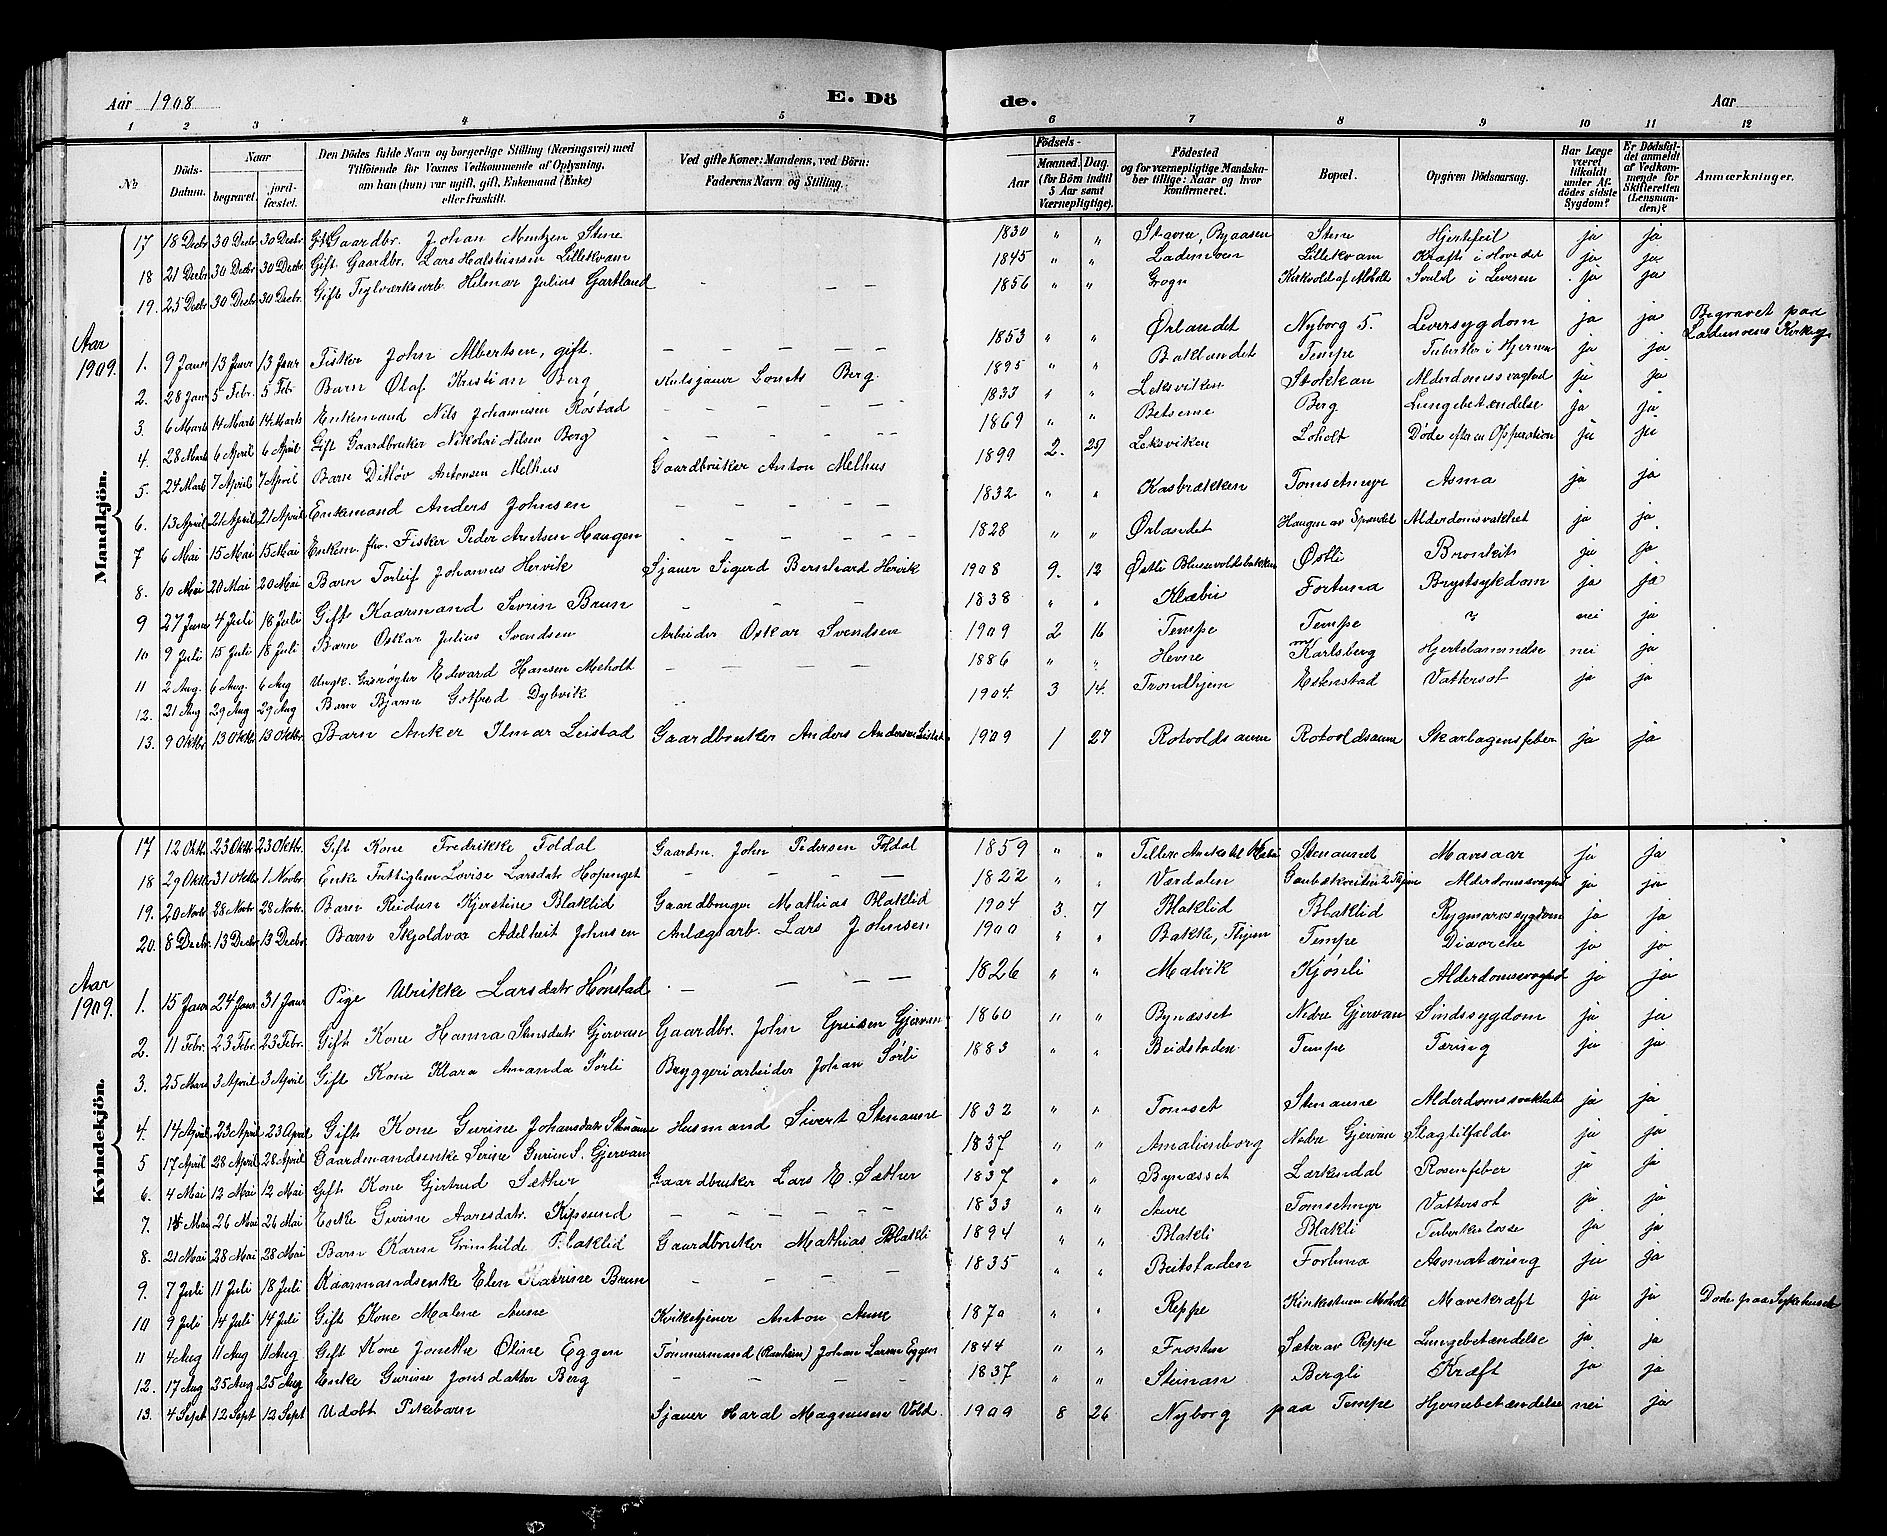 Aar 1908
E. Dö
de.
Aar
1 2 3 4 5 6 7 8 9 10 11 12
No
Döds-Datum.
Naar
begravet.
jordfæstet.
Den Dödes fulde Navn og borgerlige Stilling (Næringsvei) med Tilföiende for Voxnes Vedkommende af Oplysning, om han (hun) var ugift, gift, Enkemand (Enke) eller fraskilt.
Ved gifte Koner: Mandens, ved Börn: Faderens Navn og Stilling.
Födsels-
Aar
Maaned. Dag. (for Börn indtil 5 Aar samt Værnepligtige).
Födested og for værnepligtige Mandskaber tillige: Naar og hvor konfirmeret.
Bopæl.
Opgiven Dödsaarsag.
Har Læge været tilkaldt under Afdödes sidste Sygdom?
Er Dödsfaldet anmeldt af Vedkommende for Skifteretten (Lensmanden)?
Anmærkninger.
Mandkjön.
17 18 Decbr 30 Decbr 30 Decbr Gift Gaardbr. Johan Mentzen Stene 1830 " " Stavne, Byaasen Stene Hjertefeil ja ja
18 21 Decbr 30 Decbr 30 Decbr. Gift Gaardbr. Lars Halstensen Lillekvam 1845 " " Lademoen Lillekvam Kræft i Hovedet ja ja
19. 25 Decbr 30 Decbr 30 Decbr. Gift Teglværksarb. Hilmar Julius Gartland - - - 1856 " " Grogn Kirkvold af Moholt Svulst i Leveren ja ja
Aar 1909.
1. 9 Janr 13 Janr 13 Janr Fisker John Albertsen, gift. - - - - 1853 " " Ørlandet Nyborg 5. Leversygdom ja ja Begravet paa Lademoens Kirkeg.
2. 28 Janr 5 Febr. 5 Febr. Barn Olaf Kristian Berg Kulsjauer Lorents Berg 1895 " " Baklandet Tempe Tuberkler i Hjernen ja ja
3. 6 Marts 14 Marts 14 Marts Enkemand Nils Johannesen Røstad - - - - 1833 " " Leksviken Stokkan Alderdomssvaghed ja ja
4. 28 Marts 6 April 6 April Gift Gaardbruker Nikolai Nilsen Berg - - - - 1869 " " Betserne Berg Lungebetændelse ja ja
5. 24 Marts 7 April 7 April Barn Ditløv Antonsen Melhus Gaardbruker Anton Melhus 1899 2. 29 Leksviken Loholt Døde efter en Opperation ja ja
6. 13 April 21 April 21 April Enkemand Anders Johnsen - - - - 1832 " " Kasbrækken Tomsetmyr Asma ja ja
7 6 Mai 15 Mai 15 Mai Enkem. fhv. Fisker Peder Arntsen Haugen - - - - 1828 " " Ørlandet Haugen av Sprøndel Alderdomsvakhet ja ja
8. 10 Mai 20 Mai 20 Mai Barn Torleif Johannes Hervik Sjauer Sigurd Bernhard Hervik 1908 9. 12 Østli Blussevoldsbakken Østli Bronkit ja ja
9 27 Juni 4 Juli 18 Juli Gift Kaarmand Sevrin Brun - - - 1838 " " Klæbu Fortuna Brystsykdom ja ja
10 9 Juli 15 Juli 18 Juli Barn Oskar Julius Svendsen Arbeider Oskar Svendsen 1909 2 16 Tempe Tempe ? nei ja
11 2 Aug. 6 Aug. 6 Aug Ungk. Gaardrøgter Edvard Hansen Moholt - - - - 1886 " " Hevne Karlsberg Hjertelammelse nei ja
12. 21 Aug 29 Aug 29 Aug Barn Bjarne Gotfred Dybvik 1904. 3 14. Trondhjem Estenstad Vattersot ja ja
13. 9 Oktbr 13 Oktbr 13 Oktbr. Barn Anker Ilmar Leistad Gaardbruker Anders Andersen Leistad 1909 1 27 Rotvoldsaunn Rotvoldsaunn Skarlagensfeber ja ja
Kvindekjön.
17 12 Oktbr 23 Oktbr 23 Oktbr. Gift Kone Fredrikke Foldal Gaardm. John Pedersen Foldal 1859 " " Tillern Anneks til Klæbu Stenaunet Mavesaar ja ja
18 29 Oktbr 31 Oktbr 1. Novbr. Enke Fattiglem Lovise Larsdatr Hopenget - - - - 1822 " " Værdalen Alderdomssvaghed ja ja
19. 20 Novbr. 28 Novbr. 28 Novbr. Barn Reidun Kjerstine Blaklid Gaardbruger Mathias Blaklid 1904 3. 7 Blaklid Blaklid Rygmarvssygdom ja ja
20. 8 Decbr. 13 Decbr 13 Decbr. Barn Skjoldvor Adelheit Johnsen Anlægsarb. Lars Johnsen 1900 " " Bakke, Thjem Tempe Diaorche ja ja
Aar 1909.
1. 15 Janr 24 Janr. 31 Janr Pige Ulrikke Larsdatr Hønstad - - - - 1826 " " Malvik Kjøsli Alderdomssvaghed ja ja
2. 11 Febr. 23 Febr. 23 Febr. Gift Kone Hanna Stensdatr Gjervan Gaardbr. John Greisen Gjervan 1860 " " Bynæsset Nedre Gjervan Sindssygdom ja ja
3. 25 Mars 3 April 3 April Gift Kone Klara Amanda Sørli Bryggeriarbeider Johan Sørli 1883 " " Beidstaden Tempe Tæring ja ja
4. 14 April 23 April 23 April Gift Kone Gurine Johansdatr Stenaune Husmand Sivert Stenaune 1832 " " Tomset Stenaune Alderdomssvakhet ja ja
5 17 April 28 April 28 April Gaardmandsenke Serine Gurine S. Gjervan 1837 " " Amalienborg Nedre Gjervan Slagtilfælde ja ja
6. 4 Mai 12 Mai 12 Mai Gift Kone Gjertrud Sæther Gaardbruker Lars E. Sæther 1837 " " Bynæsset Lærkendal Rosenfeber ja ja
7. 15 Mai 26 Mai 26 Mai Enke Gurine Aaresdatr. Kipsund - - - - 1833 " " Aure Tomsetmyr Vattersot ja ja
8. 21 Mai 28 Mai 28 Mai Barn Karen Grimhilde Blaklid Gaardbruker Mathias Blakli 1894 " " Blakli Blakli Tuberkulose ja ja
9. 7 Juli 11 Juli 18 Juli Kaarmandsenke Elen Katrine Brun - - - - 1835 " " Beitstaden Fortuna Asmatæring ja ja
10 9 Juli 14 Juli 14 Juli Gift Kone Malene Aune Kirketjener Anton Aune 1870 " " Reppe Kirkestuen Moholt Mavekræft ja ja Døde paa Sykehuset
11 4 Aug 11 Aug 11 Aug Gift Kone Jonetta Oline Eggen Tømmermand (Ranheim) Johan Larsen Eggen 1844 " " Frosten Sæter av Reppe Lungebetændelse ja ja
12. 17 Aug 25 Aug 25 Aug Enke Gurine Jonsdatter Berg - - - - 1837 " " Steinan Bergli Kræft ja ja
13. 4 Sept 12 Sept 12 Sept Udøbt Pikebarn Sjauer Haral Magnusen Vold. 1909 8 26 Nyborg paa Tempe Hjernebetændelse nei ja